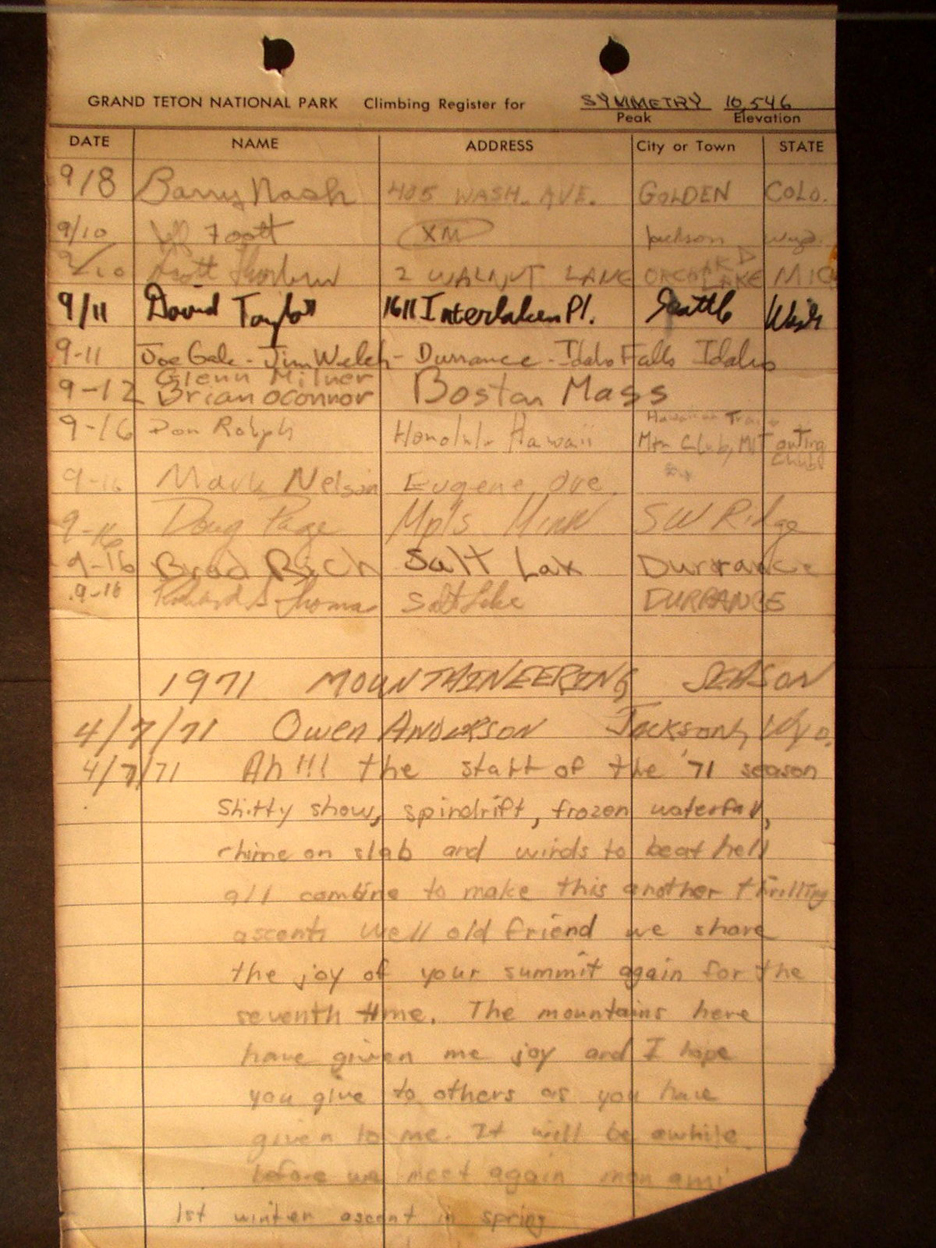 GRAND TETON NATIONAL PARK Climbing Register for SYMMETRY 10,546
Peak Elevation
DATE NAME ADDRESS City or Town STATE
9/8 Barry Nash 405 WASH. AVE. GOLDEN COLO.
9/10 Foott XM Jackson Wyo.
9/10 Scott 2 WALNUT LANE ORCHARD LAKE MIC
9/11 David Taylor 1611 Interlaken Pl. Seattle Wash
9-11 Joe Gale - Jim Welch - Durrance - Idaho Falls Idaho
Glenn Milner
9-12 Brian Oconnor Boston Mass
9-16 Don Rolph Honolulu Hawaii Hawaiian Trail
Mtn Club, MIT outing
Club
9-16 Mark Nelson Eugene Ore.
9-16 Doug Page Mpls Minn SW Ridge
9-16 Brad Rich Salt Lak Durrance
9-16 Richard S Thomas Salt Lake DURRANCE
1971 MOUNTAINEERING SEASON
4/7/71 Owen ANDERSON JACKSON, Wyo.
4/7/71 Ah!!! the start of the '71 season
Shitty snow, spindrift, frozen waterfall,
rhime on slab and winds to beat hell
all combine to make this another thrilling
ascent. Well old friend we share
the joy of your summit again for the
seventh time. The mountains here
have given me joy and I hope
you give to others as you have
given to me. It will be awhile
before we meet again mon ami
1st winter ascent in spring